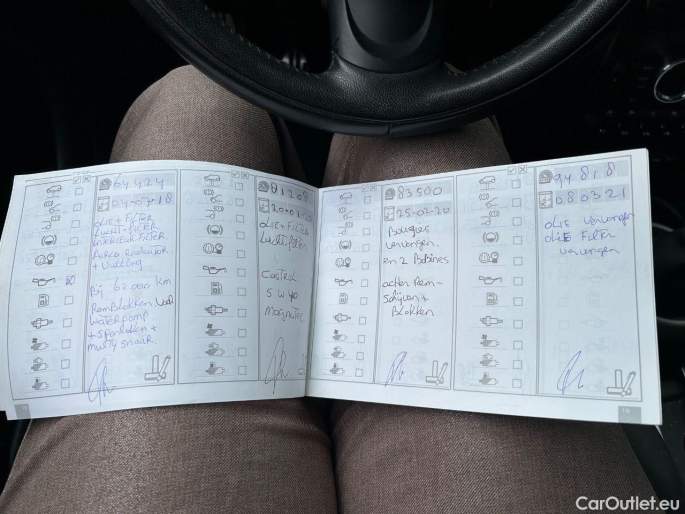 64424
24-07-18
olie + Filter
Lucht-Filter
interieur Filter
Airco
+ Vulling
Bij 62000 km
Remblokken Voor
Waterpomp
+ Spanrollen +
multy snaar.
81208
olie + Filter
Luchtfilter
Castrol
5 w 40
Magnatec
83500
25-02-20
Bougies
vervangen.
en 2 Bobines
achter Rem-
Schijven +
Blokken
94818
080321
olie vervangen
olie Filter
vervangen
CarOutlet.eu